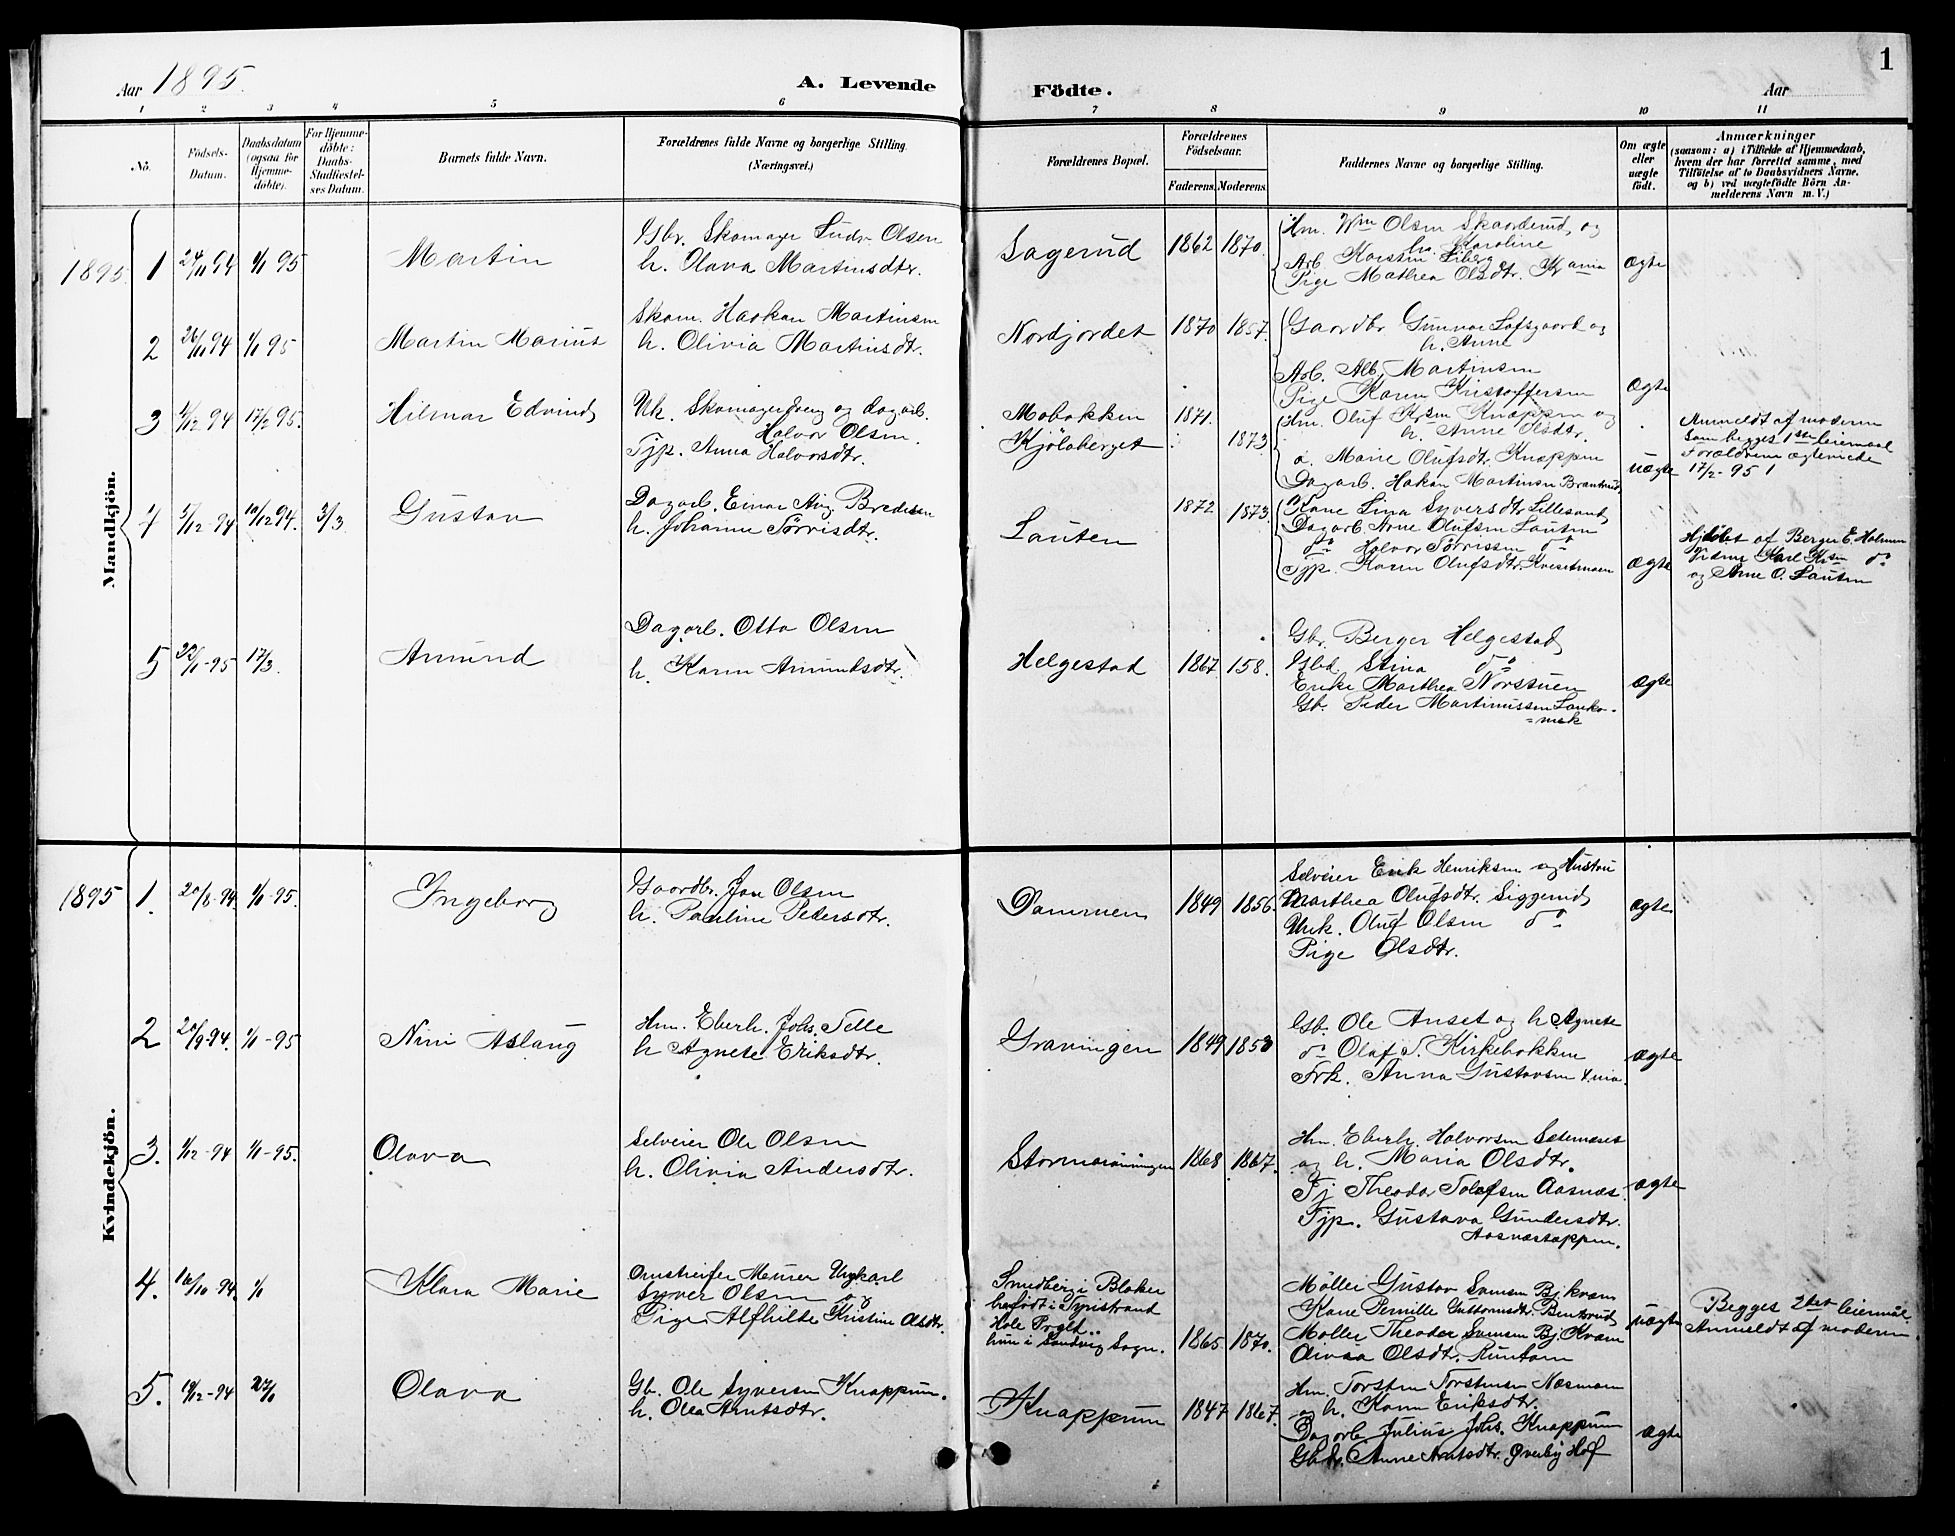 1
Aar 1895.
A. Levende Födte.
Aar
1 2 3 4 5 6 7 8 9 10 11
No.
Födsels-Datum.
Daabsdatum (ogsaa for Hjemme-döbte).
For Hjemme-döbte: Daabs-Stadfæstel-ses Datum.
Barnets fulde Navn.
Forældrenes fulde Navne og borgerlige Stilling. (Næringsvei.)
Forældrenes Bopæl.
Forældrenes Födselsaar.
Faderens. Moderens.
Faddernes Navne og borgerlige Stilling.
Om ægte eller uægte födt.
Anmærkninger
(saasom: a) i Tilfælde af Hjemmedaab,
hvem der har forrettet samme, med
Tilföielse af to Daabsvidners Navne.
og b) ved uægtefödte Börn An-
melderens Navn m. V.)
Mandkjön.
1895 1 24/11 94 1/1 95 Martin
Gbr. Skomager Ludv Olsen
h. Olava Martinsdtr.
Sagerud 1862 1870.
Hm. Wm Olsen Skaarderud, og
h. Karoline
Arb Karstin Liberg
Pige Mathea Olsdtr. Kr ania
ægte
2 26/11 94 1/1 95 Martin Marius
Skom. Haakan Martinsen
h. Olivia Martinsdtr.
Nordjordet 1870 1857.
Gaardbr Gunnar Lofsgaard og
h. Anne
Arb. Alb. Martinsen
Pige Karen Kristoffersen
ægte
3 4/12 94 17/2 95. Hilmar Edvind
Uk. Skomagerdreng og dagarb.
Halvor Olsen.
Tjp. Anna Halvorsdtr.
Mobakken 1871.
Kjölaberget 1873
Hm. Oluf Krsen Knappen og
h. Anne Olsdtr.
d. Marie Olufsdtr. Knappen
Dagarb. Hakan Martinsen
uægte
Anmeldt af moderen
Som begges 1ste leiermaal
Forældrene ægteviede
17/2-95 1
4 5/12-94 10/12 94. 3/3 Gustav
Dagarb. Einar Aug. Bredesen
h. Johanne Törrisdtr.
Lauten 1872 1873.
Kone Lina Syversdtr Lillesand
Dagarb Arne Olufsen Lauten
do Halvor Törrissen do
Tjp. Karen Olufsdtr. Kvesetmoen
ægte
Hjdöbt af Berger E. Holmen
Vidner Karl Krsen do
og Arne O. Lauten
5 22/1-95 17/3. Amund
Dagarb. Otto Olsen
h. Karen Amundsdtr.
Helgestad 1867 158.
Gbr. Berger Helgestad
Stina do
Enke Marthea Norstuen
Gb. Peder Martinussen
ægte
Kvindekjön.
1895 1. 20/8-94. 1/1-95. Ingeborg
Gaardbr. Jon Olsen
h. Pauline Pedersdtr.
Dammen 1849 1856.
Selveier Erik Henriksen og Hustru
Marthea Olufsdtr. Siggerud
Unk. Oluf Olsen do
Pige Olsdtr.
ægte
2 20/9-94. 1/1-95 Nini Aslaug
Hm. Eberh. Johs. Telle
h Agnete Eriksdtr.
Gravningen 1849 1853
Gb. Ole Anset og h Agnete
do Olaf S. Kirkebakken
Frk. Anna Gustavsen
ægte
3. 1/12-94 1/1-95. Olava
Selveier Ole Olsen
h. Olivia Andersdtr.
1868 1867.
Hm. Eberh. Halvorsen
og h. Maria Olsdtr.
Tj Theodor Tolefsen Aasnæs.
Tjp. Gustava Gundersdtr.
Aasnæstappen.
ægte
4. 16/10-94. Klara Marie
Omstreifer Meurer Ungkarl
Syver Olsen og
Pige Alfhilde Kristine Olsdtr.
Smedberg i Bloker
hefödt i Tyristrand
Hole Prglt..
hun i Sandvig Sogn.
1865 1870.
Möller Gustav Svensen Bj.kvam
Kone Pernille Guttormsdtr.
Möller Theodor Svensen Bj. Kvam
Olivia Olsdtr.
uægte
Begges 2det leiermål
Anmeldt af moderen
5. 19/12-94 27/1 Olava
Gb. Ole Syversen Knappum.
h. Olea Arntsdtr.
Knappum 1847 1867.
Hm. Torsten Torstensen Næsmoen
og h. Karen Eriksdtr.
Dagarb Julius Johs. Knappum
Anne Arntsdtr. Överby Hof
ægte